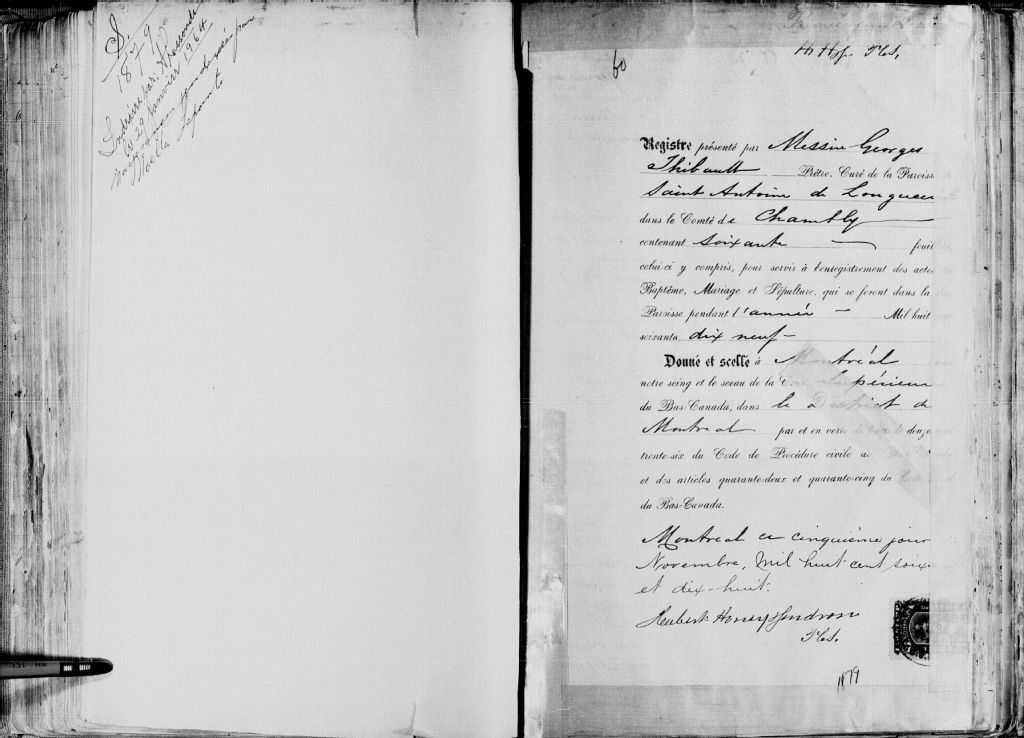 S.
1879
29 Janvier 1964
60
Registre présenté par Messire Georges
Thibault Prêtre, Curé de la Paroiss
Saint Antoine de Longueui
dans le Comté de Chambly
contenant soixante feuil
celui-ci y compris, pour servir à l'enregistrement des actes
Baptême, Mariage et Sépulture, qui se feront dans la
Paroisse pendant l'année Mil huit
soixante dix neuf
Donné et scellé à Montréal
notre seing et le sceau de la Cour Supérieure
du Bas-Canada, dans le District de
Montreal par et en vertu douze
trente-six du Code de Procédure civile
et des articles quarante-deux et quarante-cinq du Code
du Bas-Canada.
Montreal ce cinquième jour
Novembre, Mil huit cent soix
et dix-huit.
1879